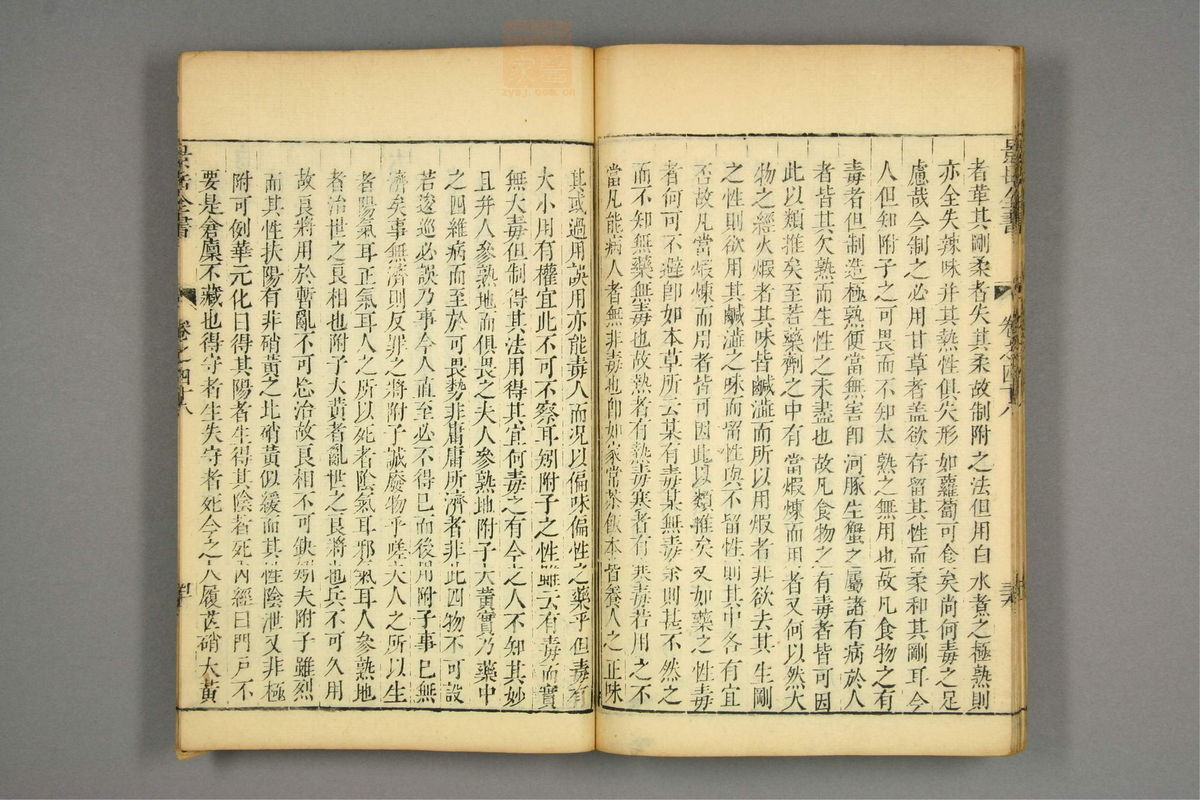 者革其剛柔者失其柔故制附之法但用白水煮之極熟則
亦全失辣味并其熱性俱失形如蘿蔔可食矣尚何毒之足
慮哉今制之必用甘草者蓋欲存留其性而柔和其剛耳今
人但知附子之可畏而不知太熟之無用也故凡食物之有
毒者但制造極熟便當無害即河豚生蟹之屬諸有病於人
者皆其欠熟而生性之未盡也故凡食物之有毒者皆可因
此以類推矣至若藥劑之中有當煆煉而用者又何以然夫
物之經火煆者其味皆鹹澁而所以用煆者非欲去其生剛
之性則欲用其鹹澁之味而留性與不留性則其中各有宜
否故凡當煆煉而用者皆可因此以類推矣又如藥之性毒
者何可不避即如本草所云某有毒某無毒余則甚不然之
而不知無藥無毒也故熱者有熱毒寒者有寒毒若用之不
當凡能病人者無非毒也即如家常茶飯本皆養人之正味
其或過用誤用亦能毒人而況以偏味偏性之藥乎但毒有
大小用有權宜此不可不察耳矧附子之性雖云有毒而實
無大毒但制得其法用得其宜何毒之有今之人不知其妙
且并人參熟地而俱畏之夫人參熟地附子大黃實乃藥中
之四維病而至於可畏勢非庸庸所濟者非此四物不可設
若逡巡必誤乃事今人直至必不得已而後用附子事已無
濟矣事無濟則反罪之將附子誠廢物乎嗟夫人之所以生
者陽氣耳正氣耳人之所以死者陰氣耳邪氣耳人參熟地
者治世之良相也附子大黃者亂世之良將也兵不可久用
故良將用於暫亂不可忽治故良相不可缺矧夫附子雖烈
而其性扶陽有非硝黃之比硝黃似緩而其性陰泄又非極
附可例華元化曰得其陽者生得其陰者死內經曰門戶不
要是倉廩不藏也得守者生失守者死今之人履芒硝大黃
景岳全書
卷之四十八
景岳全書
卷之四十八